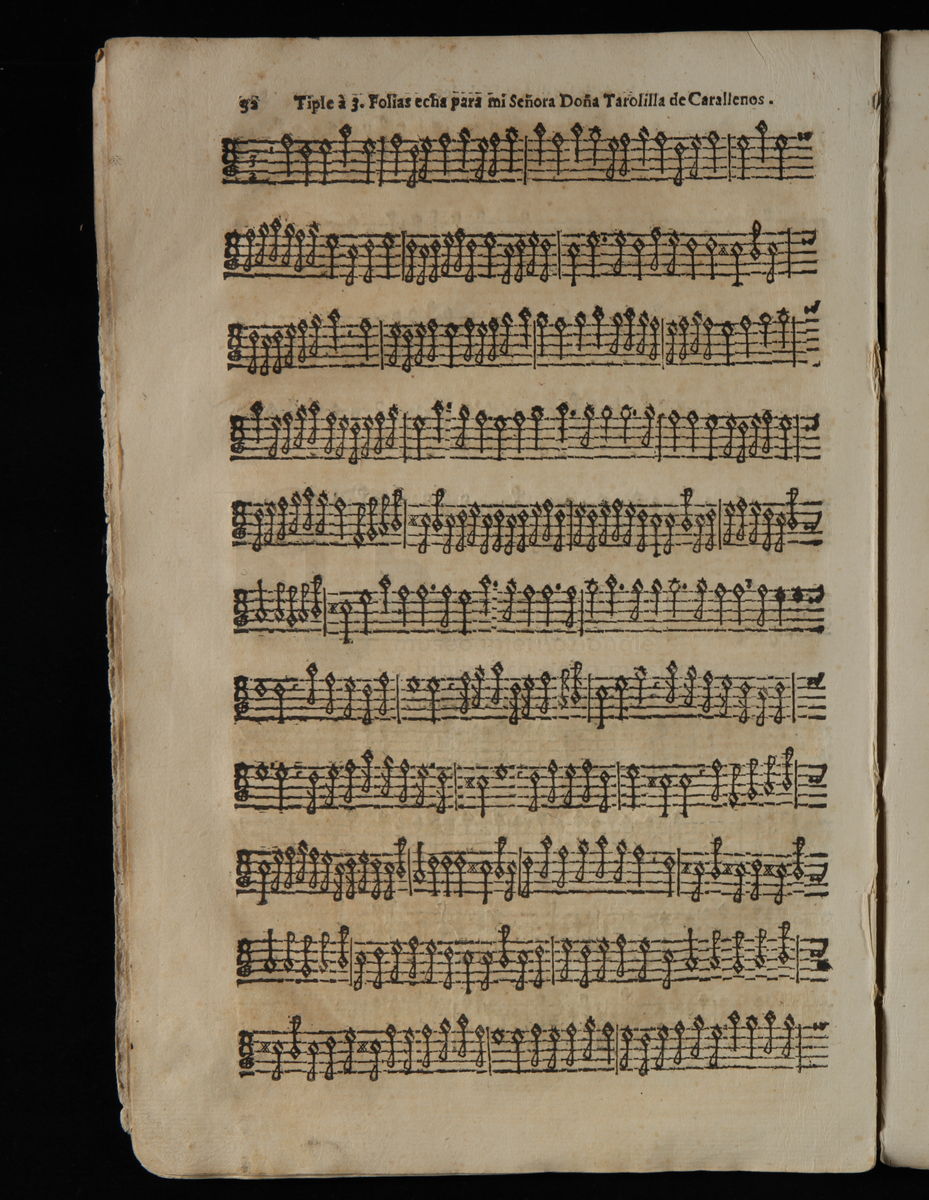 Tiple à 3. Folias echa para mi Señora Doña Tarolilla de Carallenos.